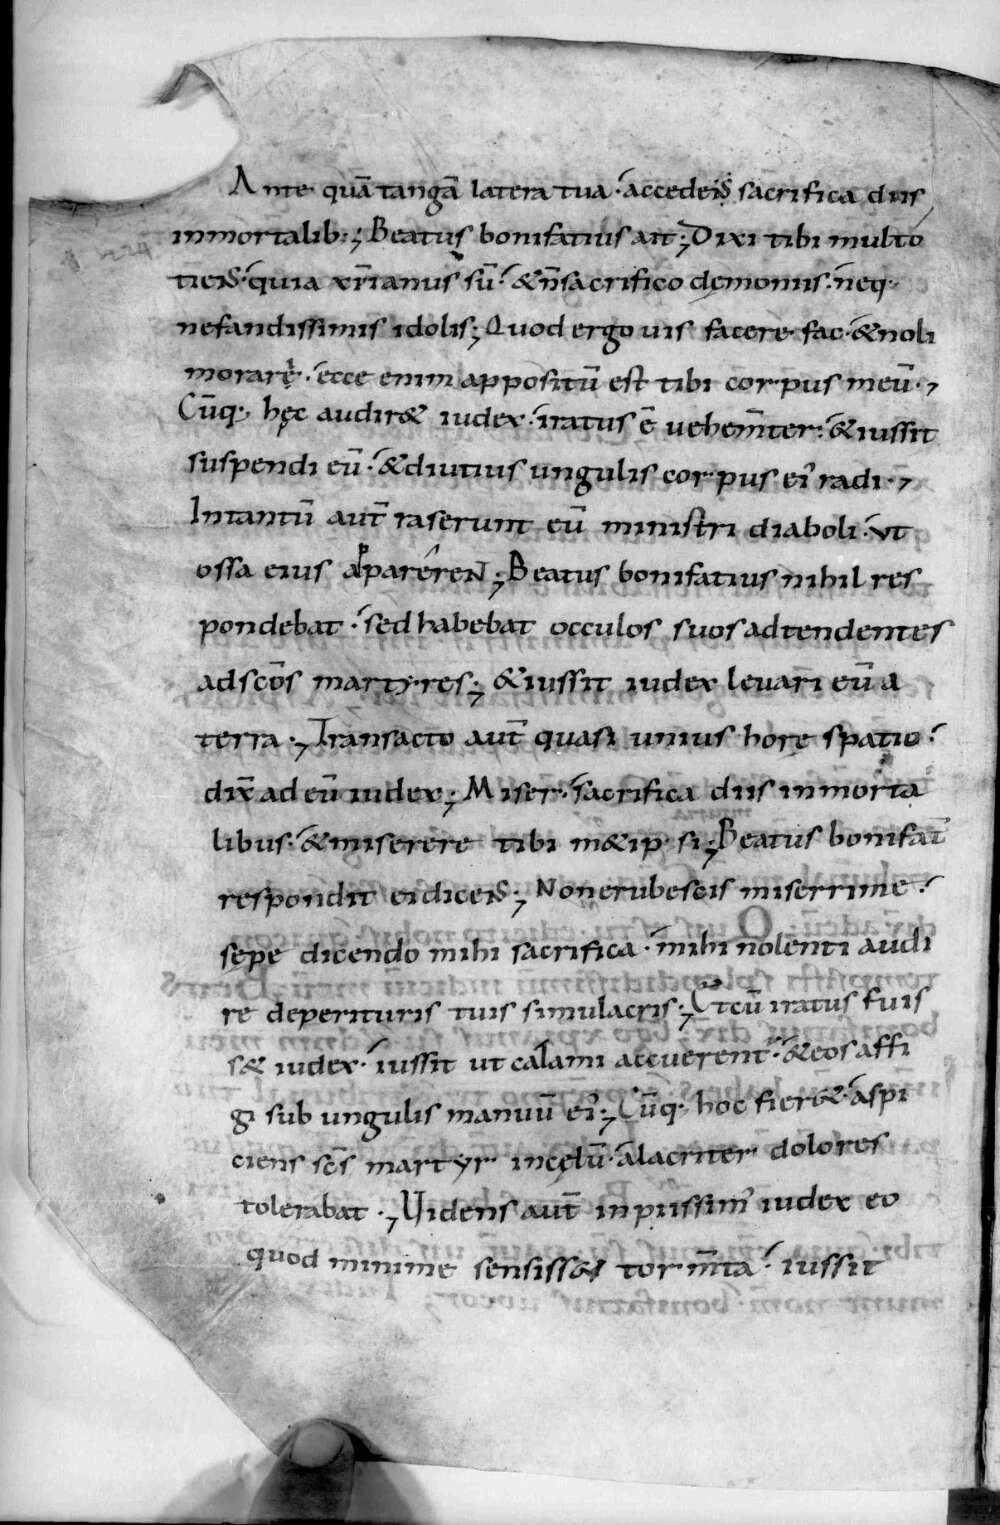 Ante quā tangā latera tua · accedeNS sacrifica diis
inmortalib:; Beatus bonifatius ait; Dixi tibi multo
tieNS · quia xr̄ianus sū · & n̄ sacrifico dęmoniis · neq·
nefandissimis idolis; Quod ergo vis facere fac · & noli
morarę · ecce enim appositū est tibi corpus meū ·,
Cūq· hęc audir& iudex · iratus ē vehem̄ter · & iussit
suspendi eū · & diutius ungulis corpus ei' radi ·,
Intantū aut̄ raserunt eū ministri diaboli · vt
ossa eius apparereN̄; Beatus bonifatius nihil res
pondebat · sed habebat occulos suos adtendentes
ad sc̄os martyres; & iussit iudex levari eū a
terra ·, Transacto aut̄ quasi unius horę spatio ·
dix̄ ad eū iudex; Miser · sacrifica diis inmorta
libus · & miserere tibi m& ip si; Beatus bonifat'
respondit ei diceNS; Non erubescis miserrime ·
sępe dicendo mihi sacrifica · mihi nolenti audi
re de perituris tuis simulacris; Et cū iratus fuis
s& iudex · iussit ut calami accuerent' · & eos affi
gi sub ungulis manuū ei'; Cūq· hoc fier& · aspi
ciens sc̄s martyr incęlū · alacriter dolores
tolerabat ·, Videns aut̄ inpiissim' iudex eo
quod minime sensiss& torm̄ta · iussit